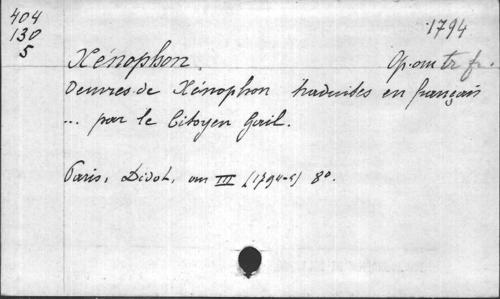 404
130
5
1794
Xénophon. Op. om tr. fr.
Oeuvres de Xénophon traduites en français
... par le Citoyen Gail.
Paris, Didot, an III (1794-5) 8°.